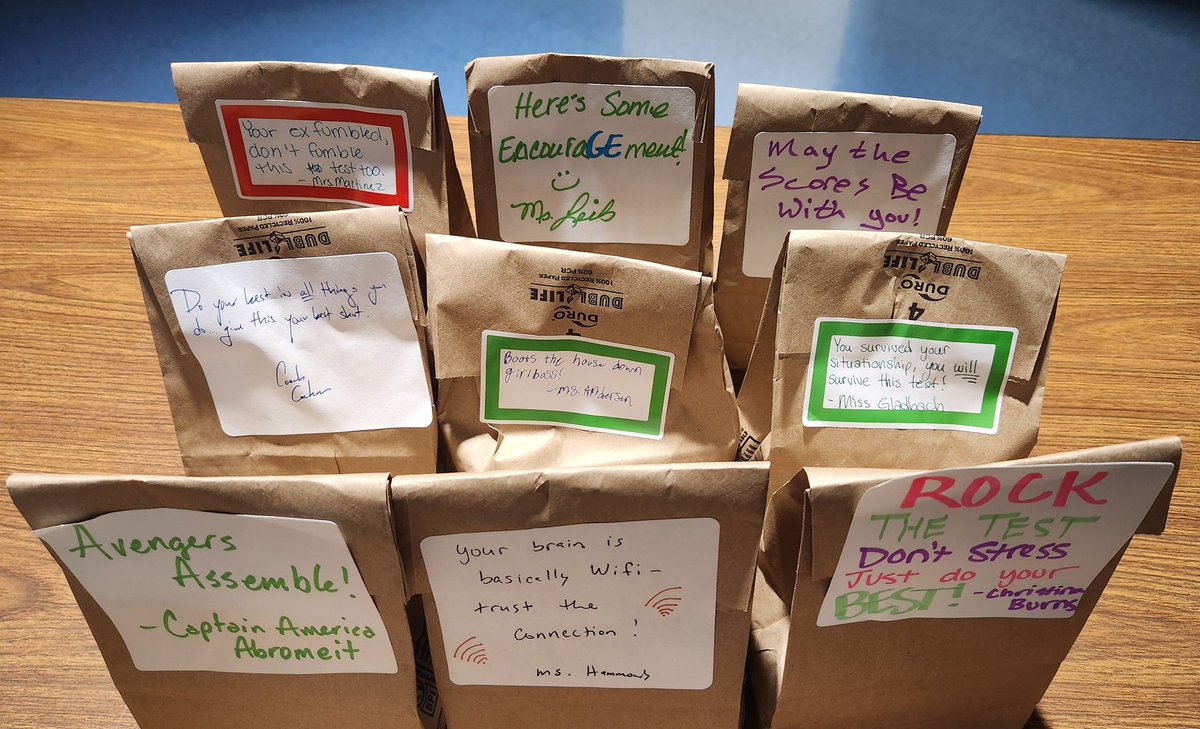 Your ex fumbled,
don't fumble
this test too.
- Mrs. Martinez
Here's Some
EncouraGEment!
Ms. Leib
May the
Scores Be
With you!
100% RECYCLED PAPER
60% PCR
DUBL LIFE
Do your best in all things you
do... give this your best shot.
Coach
100% RECYCLED PAPER
60% PCR
DUBL LIFE
DURO
4
Boots the house down
girlboss!
- Ms. Anderson
100% RECYCLED PAPER
60% PCR
DUBL LIFE
DURO
4
You survived your
situationship, you will
survive this test!
- Miss Gladbach
Avengers
Assemble!
- Captain America
Abromeit
Your brain is
basically Wifi -
trust the
connection!
Ms. Hammonds
ROCK
THE TEST
Don't Stress
Just do your
BEST! - Christina
Burns